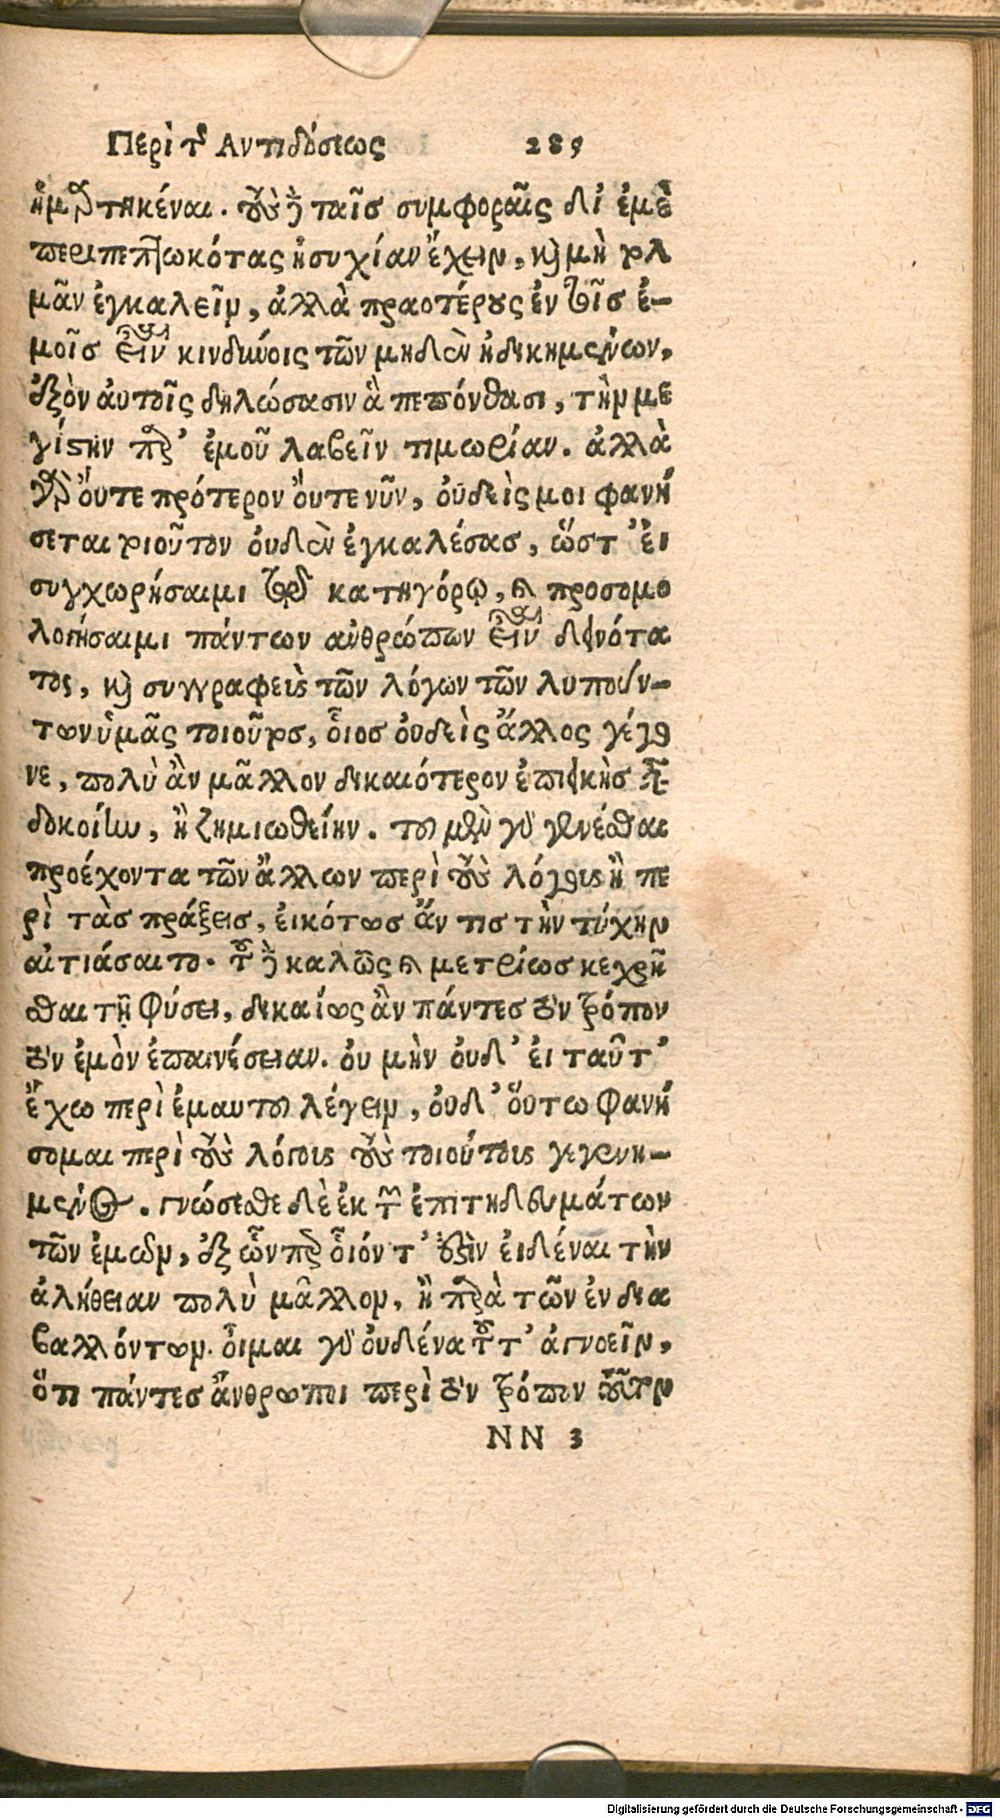 Περὶ τῆς Αντιδόσεως 285
ἡμαρτηκέναι. τοὺς δὲ ταῖς συμφοραῖς δι' ἐμὲ
περιπεπτωκότας ἡσυχίαν ἔχειν, καὶ μὴ τολ
μᾶν ἐγκαλεῖν, ἀλλὰ πραοτέρους ἐν τοῖς ἐ-
μοῖς εἶναι κινδύνοις τῶν μηδὲν ἠδικημένων,
ἐξὸν αὐτοῖς δηλώσασιν ἃ πεπόνθασι, τὴν με
γίστην παρ' ἐμοῦ λαβεῖν τιμωρίαν. ἀλλὰ
γὰρ οὔτε πρότερον οὔτε νῦν, οὐδείς μοι φανή
σεται τοιοῦτον οὐδὲν ἐγκαλέσας, ὥστ' εἰ
συγχωρήσαιμι τῷ κατηγόρῳ, καὶ προσομο
λογήσαιμι πάντων ἀνθρώπων εἶναι δεινότα
τος, καὶ συγγραφεὺς τῶν λόγων τῶν λυπούν-
των ὑμᾶς τοιοῦτος, οἷος οὐδεὶς ἄλλος γέγο
νε, πολὺ ἂν μᾶλλον δικαιότερον ἐπιεικὴς εἶναι
δοκοίην, ἢ ζημιωθείην. τοῦ μὲν γὰρ γενέσθαι
προέχοντα τῶν ἄλλων περὶ τοὺς λόγους ἢ πε
ρὶ τὰς πράξεις, εἰκότως ἄν τις τὴν τύχην
αἰτιάσαιτο. τοῦ δὲ καλῶς καὶ μετρίως κεχρῆ
σθαι τῇ φύσει, δικαίως ἂν πάντες τὸν τρόπον
τὸν ἐμὸν ἐπαινέσειαν. οὐ μὴν οὐδ' εἰ ταῦτ'
ἔχω περὶ ἐμαυτοῦ λέγειν, οὐδ' οὕτω φανή
σομαι περὶ τοὺς λόγους τοὺς τοιούτους γεγενη-
μένος. γνώσεσθε δὲ ἐκ τῶν ἐπιτηδευμάτων
τῶν ἐμῶν, ἐξ ὧνπερ οἷόν τ' ἐστὶν εἰδέναι τὴν
ἀλήθειαν πολὺ μᾶλλον, ἢ παρὰ τῶν ἐν δια
βαλλόντων. οἶμαι γὰρ οὐδένα τοῦτ' ἀγνοεῖν,
ὅτι πάντες ἄνθρωποι περὶ τὸν τρόπον τοῦτον
NN 3
Digitalisierung gefördert durch die Deutsche Forschungsgemeinschaft - DFG